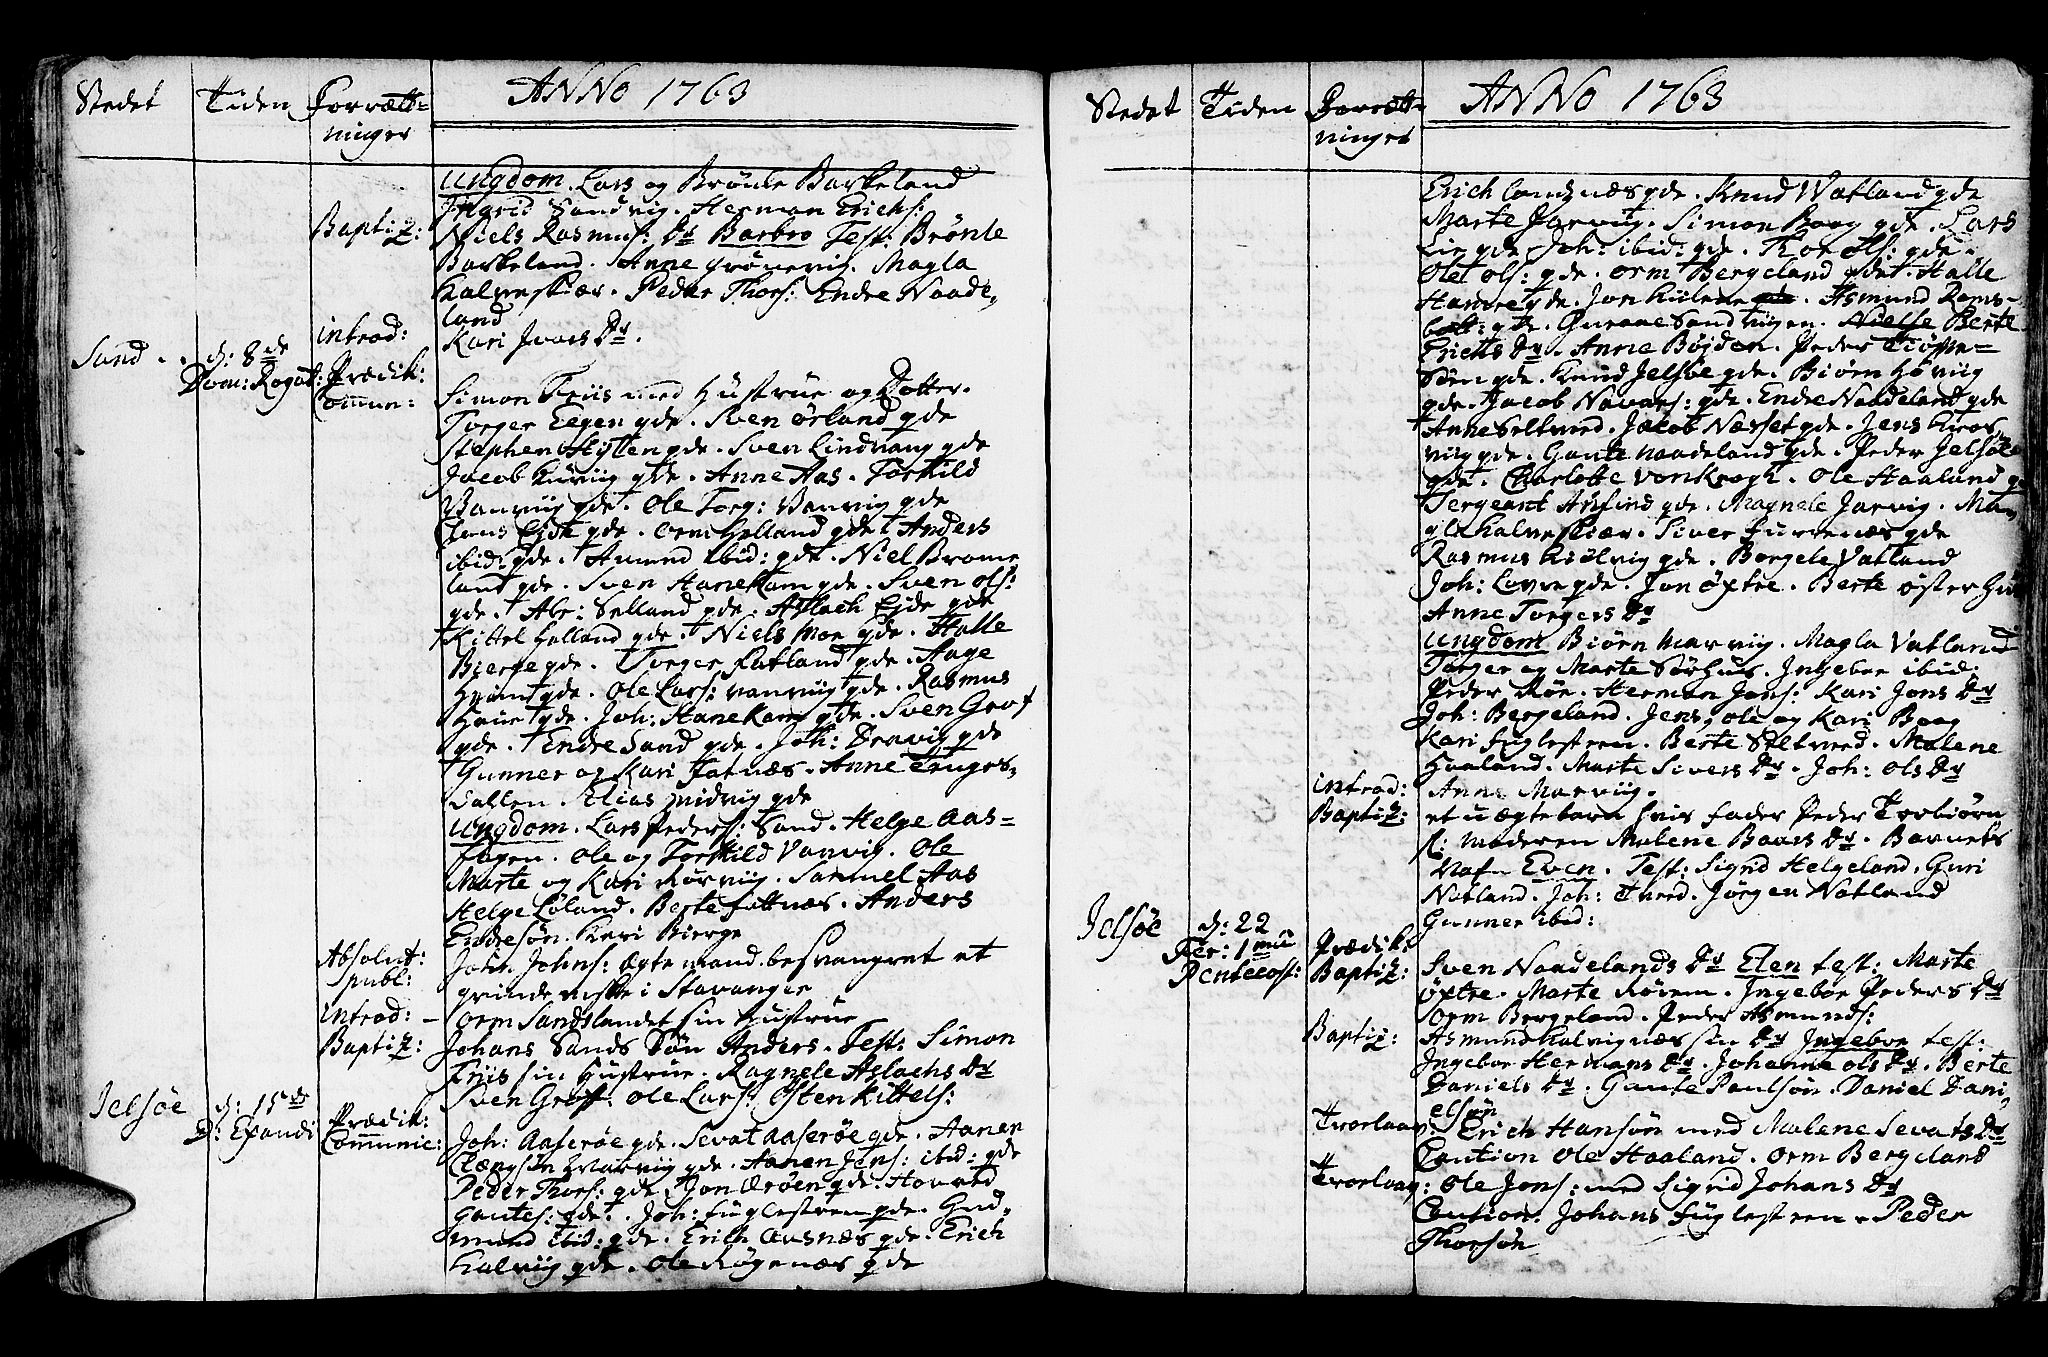 Stedet Tiden Forrætt-
ninger
ANNO 1763
Ungdom. Lars og Brønle Barkeland
Ingrid Sandvig. Herman Erichs:
Baptiz: Niels Rasmus: Dr Barbro Test: Brønle
Barkeland. Anne Grønevig. Magla
Kalveskiær. Peder Thors: Endre Naade,
land
introd: Kari Ivars Dr.
Sand. d: 8de Prædik:
Dom: Rogat: Commun:
Simon Friis med Hustrue og Dotter.
Torger Eegen gde. Sven Ørland gde
Stephen gde. Sven Lindvang gde
Jacob gde. Anne Aas. Torkild
Vanviig gde. Ole Torg: Vanvig gde
Jens Eide gde. Orm Helland gde Anders
ibid: gde. Amund ibid: gde. Niel Brome
land gde. Sven Hanekam gde. Sven Ols:
gde. Abr: Selland gde. Aslach Eide gde
Kittel Helland gde. Niels Moe gde. Halle
Bierge gde. Torger Fatland gde. Aage
gde. Ole Lars: Vanviig gde. Rasmus
gde. Joh: Hanekam gde. Sven Grof
gde. Endre Sand gde. Joh: Dravig gde
Gunner og Kari Fatnæs. Anne
Elias gde
Ungdom. Lars Peders: Sand. Helge Aas-
Ole og Torkild Vanvig. Ole
Marte og Kari Rørviig. Samuel Aas
Helge Løland. Berte Fattnæs. Anders
Endresøn. Kari Bierge
Absolut: John Johns: ægte mand. besvangret et
publ: qvindemske i Stavanger
introd: - Orm Sandslandet sin Hustrue
Baptiz: Johans Sands Søn Anders. Test: Simon
Friis sin Hustrue. Ragnele Aslachs Dr
Sven Groff. Ole Lars: Østen Kittels:
Jelsøe d: 15de Prædik:
D: Exaudi Communic: Joh: Aaserøe gde. Sevat Aaserøe gde. Aanen
gde. Aanen Jens: ibid: gde
Peder Thors: gde. Jon Ærøen gde. Havard
Gautes: gde. Joh: Fuglestreen gde. Gud,
mund ibid: gde. Erich Avsnæs gde. Erich
Kalviig gde. Ole Røgenæs gde
Stedet Tiden Forrætt-
ninger
ANNO 1763
Erich Landznæs gde. Knud Vatland gde
Marte Jarviig. Simon Baag gde. Lars
Lie gde Joh: ibid: gde. Thor Ols: gde.
Ole Ols: gde. Orm Bergeland gde. Halle
Hamre gde. Jon gde. Asmund Rams-
bott: gde. Gurane Sandviigen. Nielse Berte
Erichs Dr. Anne Bøjden. Peder
Søn gde. Knud Jelsøe gde. Biørn Høviig
gde. Jacob Navars: gde. Endre Naadeland gde
Anne Seltveed. Jacob Næsset gde. Jens
viig gde. Gaute Naadeland gde. Peder Jelsøe
gde. Charlotte von Krogh. Ole Haaland gde
Sergeant Arfind gde. Magnele Jarvig. Ma,
gla Kalveskiær. Siver Furrenæs gde
Rasmus Kiølvig gde. Borgele Vatland
Joh: Lovre gde. Jon Øxtre. Berte Østerhuus
Anne Torgers Dr
Ungdom Biørn Marviig. Magla Vatland
Torger og Marte Sørhus. Ingebor ibid:
Peder Røe. Herman Jens: Kari Jons Dr
Joh: Bergeland. Jens, Ole og Kari Baag
Kari Fuglestreen. Berte Seltveed. Malene
Haaland. Marte Sivers Dr. Joh: Ols Dr
introd: Anne Marviig.
Baptiz: et u ægte barn hvis fader Peder Torbiørn
s: Moderen Malene Baars Dr. Barnets
Nafn Even. Test: Sigrid Helgeland. Guri
Natland. Joh: Tveed. Jørgen Natland
Gunner ibid:
Jelsøe d: 22 Prædik:
Fer: 1mæ Baptiz: Sven Naadelands Dr Elen test: Marte
Pentecost: Øxtre. Marte Røvem. Ingebor Peders Dr
Orm Bergeland. Peder Asmunds:
Baptiz: Asmund Kalvignæs sin Dr Ingebor test:
Ingebor Hermans Dr. Johanne Ols Dr. Berte
Daniels Dr. Gaute Paulsøn. Daniel Dani,
elsøn
Trorlaav: Erich Hansøn med Malene Sevats Dr
Caution Ole Haaland. Orm Bergeland
Trorlaav: Ole Jons: med Sigrid Johans Dr
Caution. Johans Fuglestreen. Peder
Thorsøn